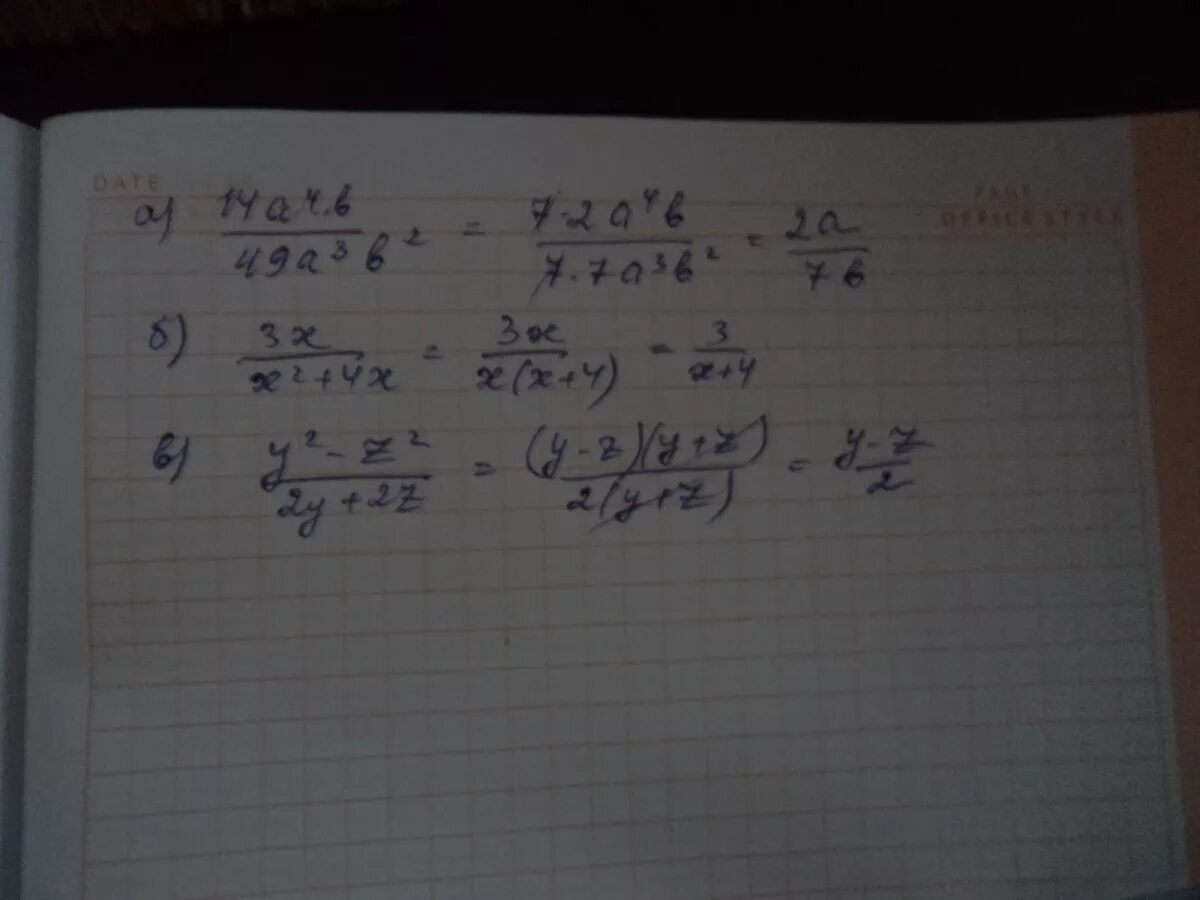 DATE
PAGE
OFFICE STYLE
а) 14a⁴b / 49a³b² = 7·2a⁴b / 7·7a³b² = 2a / 7b
б) 3x / x²+4x = 3x / x(x+4) = 3 / x+4
в) y²-z² / 2y+2z = (y-z)(y+z) / 2(y+z) = y-z / 2